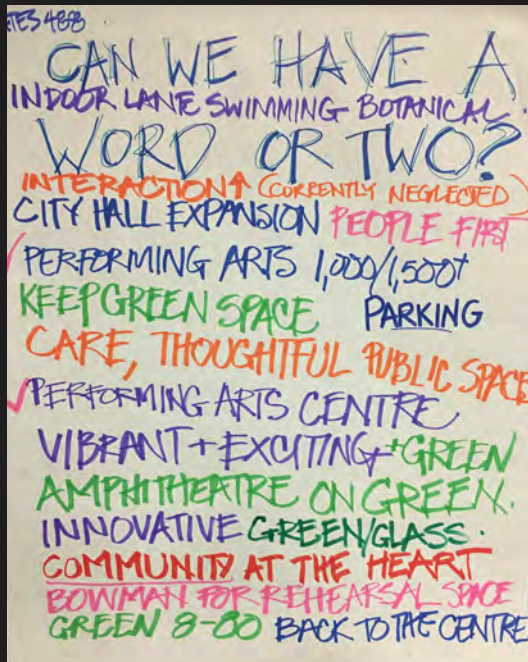 TES 488
CAN WE HAVE A
INDOOR LANE SWIMMING BOTANICAL
WORD OR TWO?
INTERACTION↑ (CURRENTLY NEGLECTED)
CITY HALL EXPANSION PEOPLE FIRST
✓ PERFORMING ARTS 1,000/1,500+
KEEP GREEN SPACE PARKING
CARE, THOUGHTFUL PUBLIC SPACE
✓ PERFORMING ARTS CENTRE
VIBRANT + EXCITING + GREEN
AMPHITHEATRE ON GREEN.
INNOVATIVE GREEN/GLASS.
COMMUNITY AT THE HEART
BOWMAN FOR REHEARSAL SPACE
GREEN 8-80 BACK TO THE CENTRE